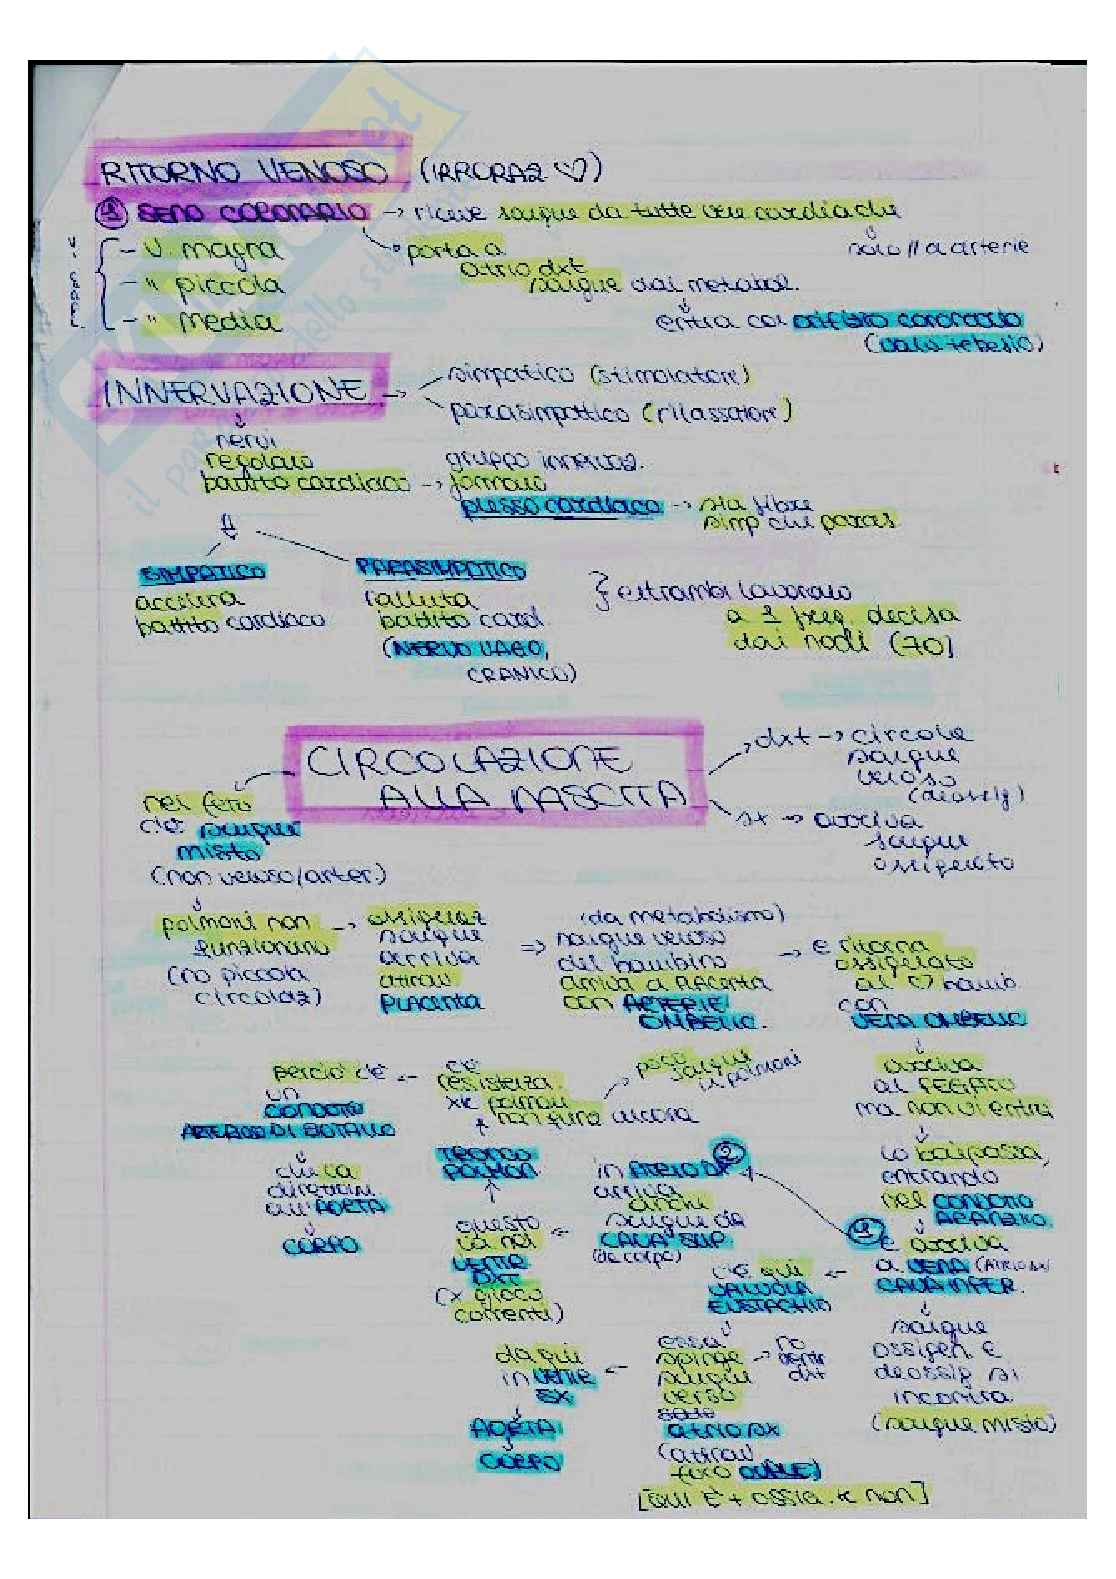 RITORNO VENOSO (IRRORAZ ♡)
① SENO CORONARIO → riceve sangue da tutte vene cardiache
solo // a arterie
V. CARD.
- V. magna
- " piccola
- " media
→ porta a
atrio dxt
sangue dai metabol.
entra con orifizio coronario
(valv. tebesio)
INNERVAZIONE →
simpatico (stimolatore)
parasimpatico (rilassatore)
nervi
regolano
battito cardiaco →
gruppo innervaz.
formano
plesso cardiaco → sia fibre
simp che paras
SIMPATICO
accelera
battito cardiaco
PARASIMPATICO
rallenta
battito card.
(NERVO VAGO,
CRANICO)
} entrambi lavorano
a 1 freq. decisa
dai nodi (70)
CIRCOLAZIONE
ALLA NASCITA
dxt → circola
sangue
venoso
(deossig)
sx → arriva
sangue
ossigenato
nel feto
c'è sangue
misto
(non venoso/arter.)
polmoni non
funzionano
(no piccola
circolaz)
→ ossigenaz
sangue
arriva
attrav
PLACENTA
⇒ (da metabolismo)
sangue venoso
del bambino
arriva a PLACENTA
con ARTERIE
OMBELIC.
→ e ritorna
ossigenato
al ♡ bamb.
con
VENA OMBELIC
arriva
al FEGATO
ma non vi entra
lo baipassa,
entrando
nel CONDOTTO
ARANZIO
① e arriva
a VENA (ATRIO DX)
CAVA INFER.
sangue
ossigen e
deossig si
incontra
(sangue misto)
← c'è qui
VALVOLA
EUSTACHIO
essa
spinge → no
ventr
dxt
sangue
verso
atrio sx
(attrav
foro OVALE)
[qui è + ossig. x non]
← da qui
in VENTR
SX
AORTA
CORPO
② in ATRIO DX
arriva
anche
sangue da
CAVA SUP.
(da corpo)
← questo
va nel
VENTR
DXT
(x gioco
correnti)
TRONCO
POLMON
c'è
resistenza
xk polmoni
non funz ancora
→ poco
sangue
in polmoni
← perciò c'è
un
CONDOTTO
ARTERIOSO DI BOTALLO
che va
direzion
all'AORTA
CORPO